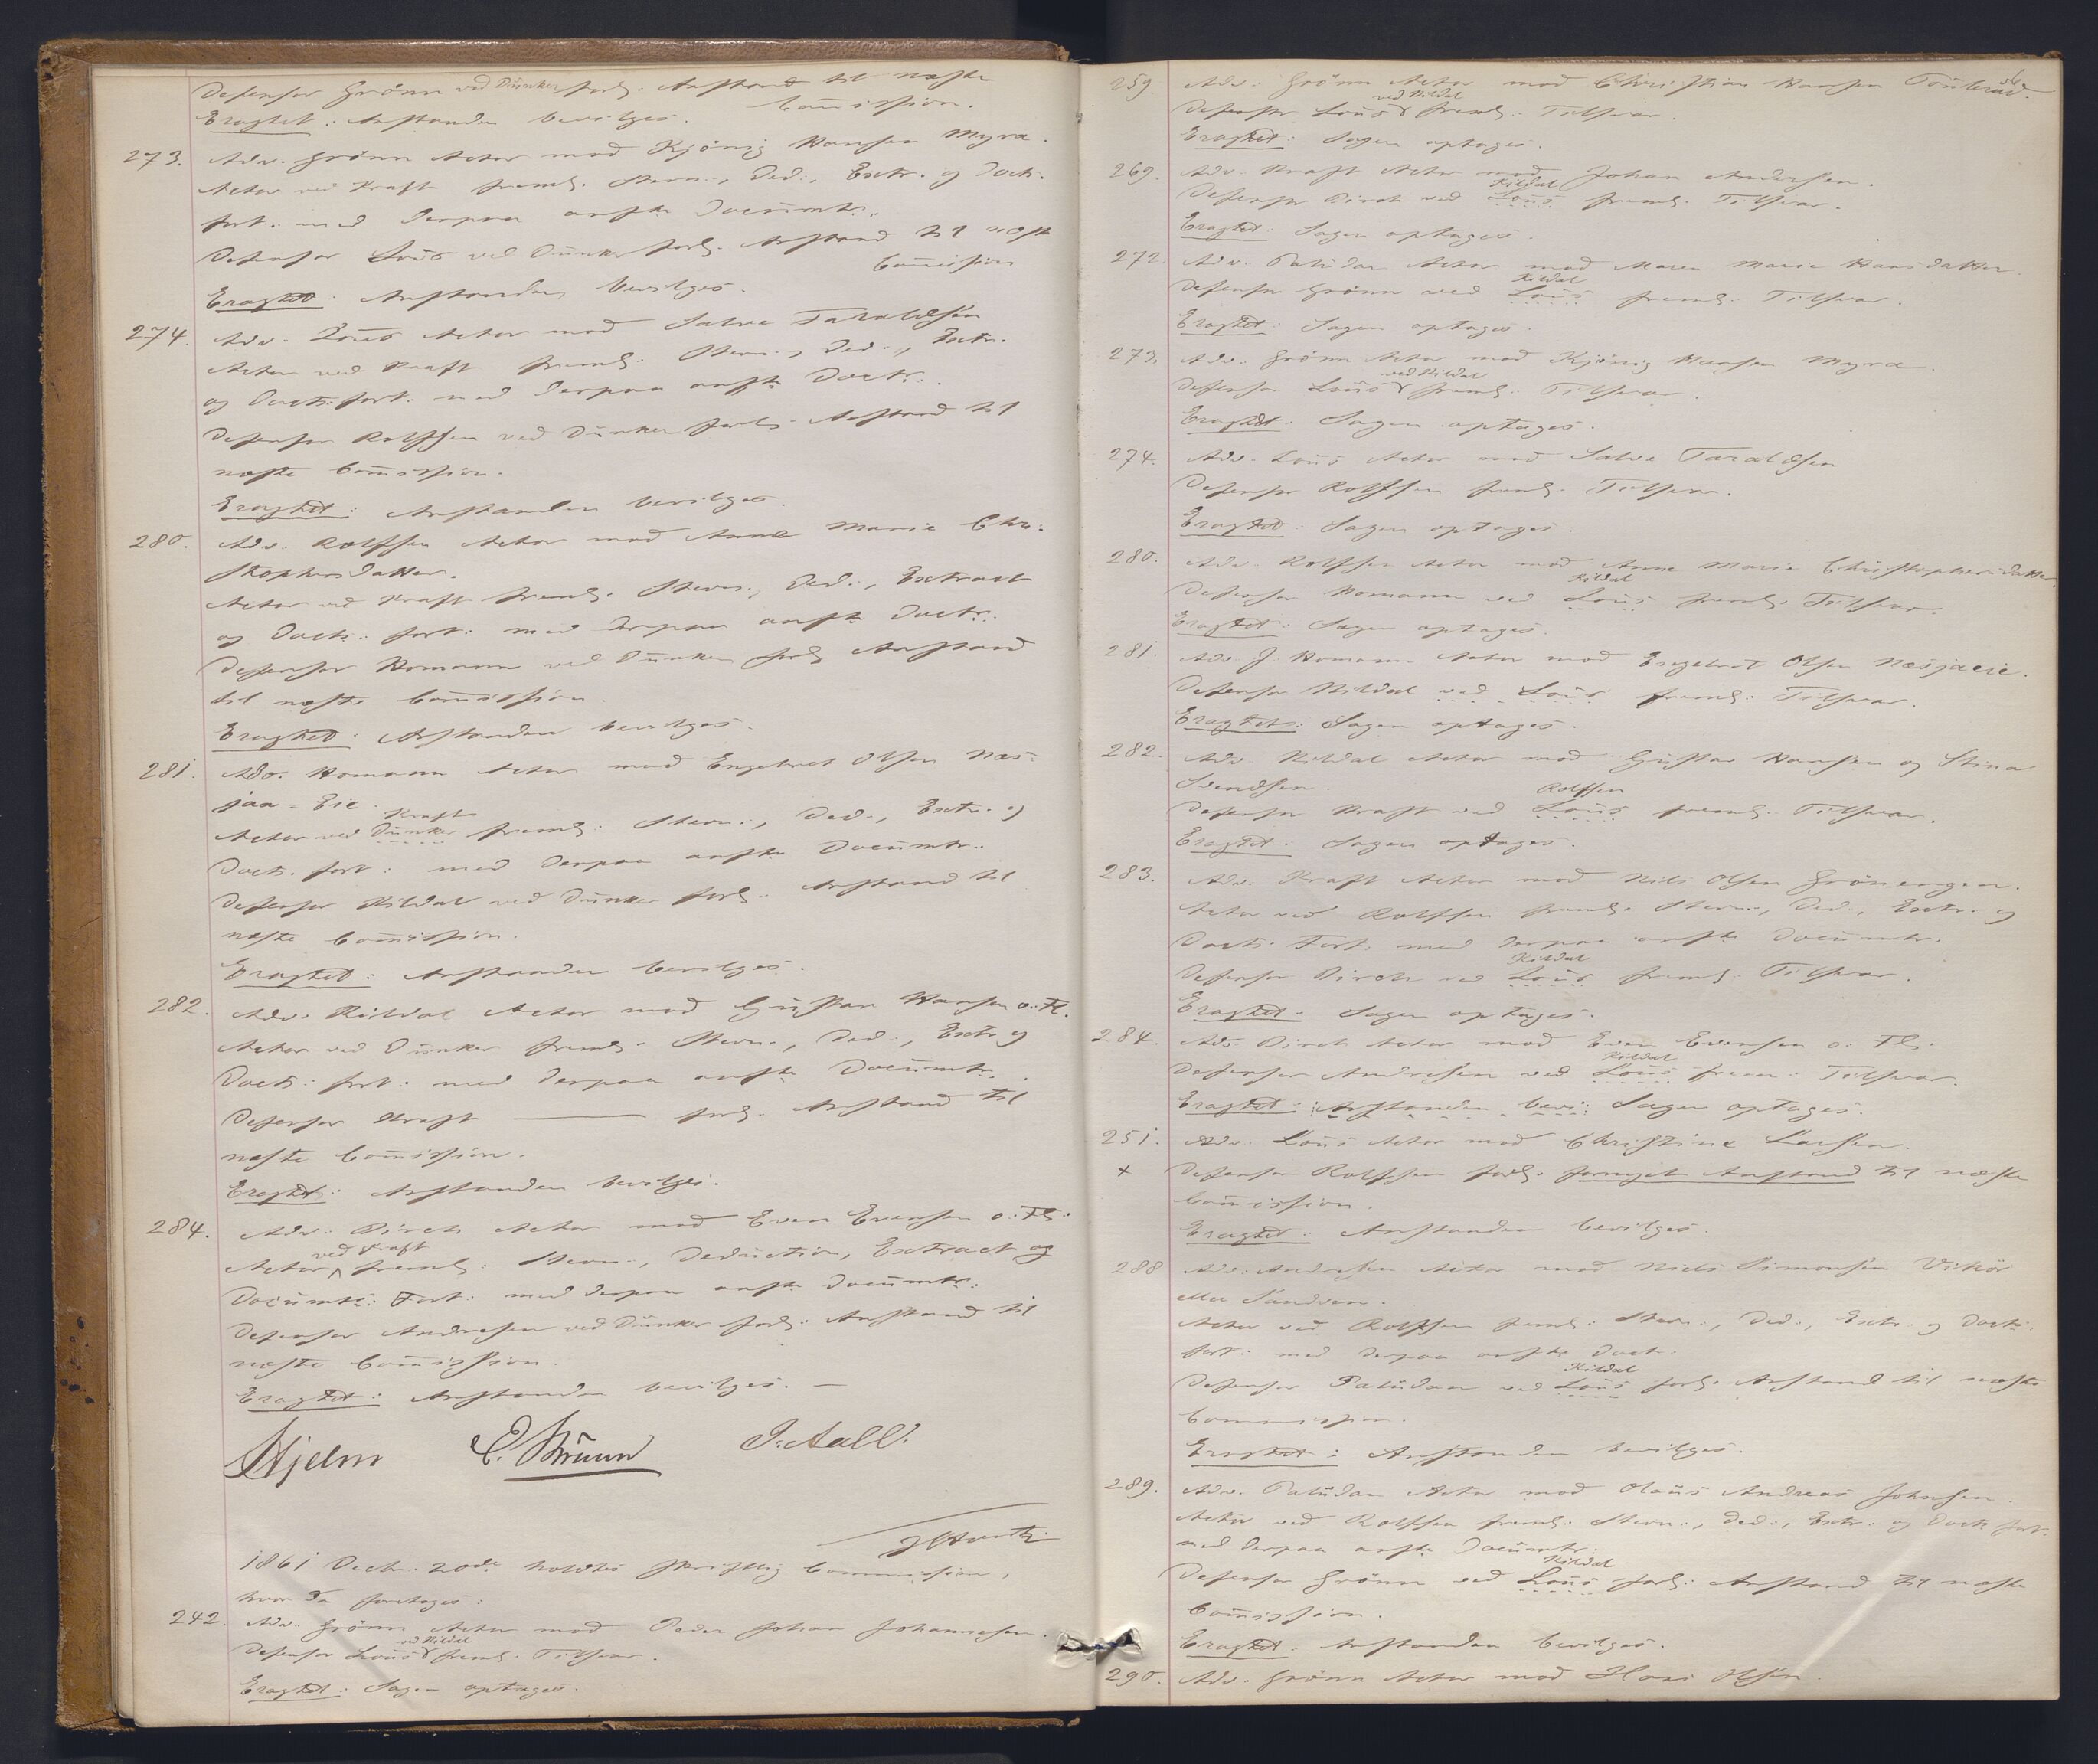 Defensor Grönn ved Dunker forl. Anstand til næste
Comission.
Eragtet: Anstanden bevilges.
273. Adv. Grönn Actor mod Kjönig Hansen Myra.
Actor ved Kraft freml. Stevn., Ded., Extr. og Doct.
fort. med derpaa anfte Documtr.
Defensor Lous ved Dunker forl. Anstand til næste
Comission
Eragtet: Anstanden bevilges.
274. Adv. Lous Actor mod Salve Taraldsen
Actor ved Kraft freml. Stevn., Ded., Extr.
og Docts. fort. med derpaa anfte Doctr.
Defensor Rolfsen ved Dunker forl. Anstand til
næste Comission.
Eragtet: Anstanden bevilges.
280. Adv. Rolfsen Actor mod Anne Marie Chri-
stophersdatter.
Actor ved Kraft freml. Stevn., Ded., Extract
og Docts. fort. med derpaa anfte Doctr.
Defensor Homann ved Dunker forl. Anstand
til næste Comission.
Eragtet: Anstanden bevilges.
281. Adv. Homann Actor mod Engebret Olsen Næs-
jaa-Eie.
Kraft
Actor ved Dunker freml. Stevn., Ded., Extr. og
Docts. fort. med derpaa anfte Documtr.
Defensor Kildal ved Dunker forl. Anstand til
næste Comission.
Eragtet: Anstanden bevilges.
282. Adv. Kildal Actor mod Gustav Hansen o. Fl.
Actor ved Dunker freml. Stevn., Ded., Extr. og
Docts. fort. med derpaa anfte Documtr.
Defensor Kraft ——— forl. Anstand til
næste Comission.
Eragtet: Anstanden bevilges.
284. Adv. Birch Actor mod Even Evensen o. Fl.
ved Kraft
Actor freml. Stevn., Deduction, Extract og
Documts. Fort. med derpaa anfte Documtr.
Defensor Andresen ved Dunker forl. Anstand til
næste Comission.
Eragtet: Anstanden bevilges. —
Hjelm E. Bruun J. Aall.
1861 Decbr. 20de holdtes skriftlig Commission,
hvor da foretoges:
242. Adv. Grönn Actor mod Peder Johan Johannesen.
ved Kildal
Defensor Lous freml. Tilsvar.
Eragtet: Sagen optages.
259. Adv. Grönn Actor mod Christian Hansen
ved Kildal
Defensor Lous freml. Tilsvar.
Eragtet: Sagen optages.
269. Adv. Kraft Actor mod Johan Andersen.
Kildal
Defensor Birch ved Lous freml. Tilsvar.
Eragtet: Sagen optages.
272. Adv. Paludan Actor mod Maren Marie Hansdatter.
Kildal
Defensor Grönn ved Lous freml. Tilsvar.
Eragtet: Sagen optages.
273. Adv. Grönn Actor mod Kjönig Hansen Myra.
ved Kildal
Defensor Lous freml. Tilsvar.
Eragtet: Sagen optages.
274. Adv. Lous Actor mod Salve Taraldsen
Defensor Rolfsen freml. Tilsvar.
Eragtet: Sagen optages.
280. Adv. Rolfsen Actor mod Anne Marie Christophersdatter.
Kildal
Defensor Homann ved Lous freml. Tilsvar.
Eragtet: Sagen optages.
281. Adv. J. Homann Actor mod Engebret Olsen Næsjaeie.
Defensor Kildal ved Lous freml. Tilsvar.
Eragtet: Sagen optages.
282. Adv. Kildal Actor mod Gustav Hansen og Stina
Svendsen.
Rolfsen
Defensor Kraft ved Lous freml. Tilsvar.
Eragtet: Sagen optages.
283. Adv. Kraft Actor mod Nils Olsen Grönengen.
Actor ved Rolfsen freml. Stevn., Ded., Extr. og
Docts. Fort. med derpaa anfte Documtr.
Kildal
Defensor Birch ved Lous freml. Tilsvar.
Eragtet: Sagen optages.
284. Adv. Birch Actor mod Even Evensen o. Fl.
Kildal
Defensor Andresen ved Lous frem. Tilsvar.
Eragtet: Anstanden bevi: Sagen optages.
251. Adv. Lous Actor mod Christine Larsen.
x Defensor Rolfsen forl. fornyet Anstand til næste
Comission.
Eragtet: Anstanden bevilges.
288 Adv. Andresen Actor mod Niels Simonsen Vikör
eller Sandven.
Actor ved Rolfsen freml. Stevn., Ded., Extr. og Docts.
fort. med derpaa anfte Doctr.
Kildal
Defensor Paludan ved Lous forl. Anstand til næste
Commission.
Eragtet: Anstanden bevilges.
289. Adv. Paludan Actor mod Olaus Andreas Johnsen.
Actor ved Rolfsen freml. Stevn., Ded., Extr. og Docts. fort.
med derpaa anfte Documtr.
Kildal
Defensor Grönn ved Lous forl. Anstand til næste
Comission.
Eragtet: Anstanden bevilges.
290. Adv. Grönn Actor mod Hans Olsen